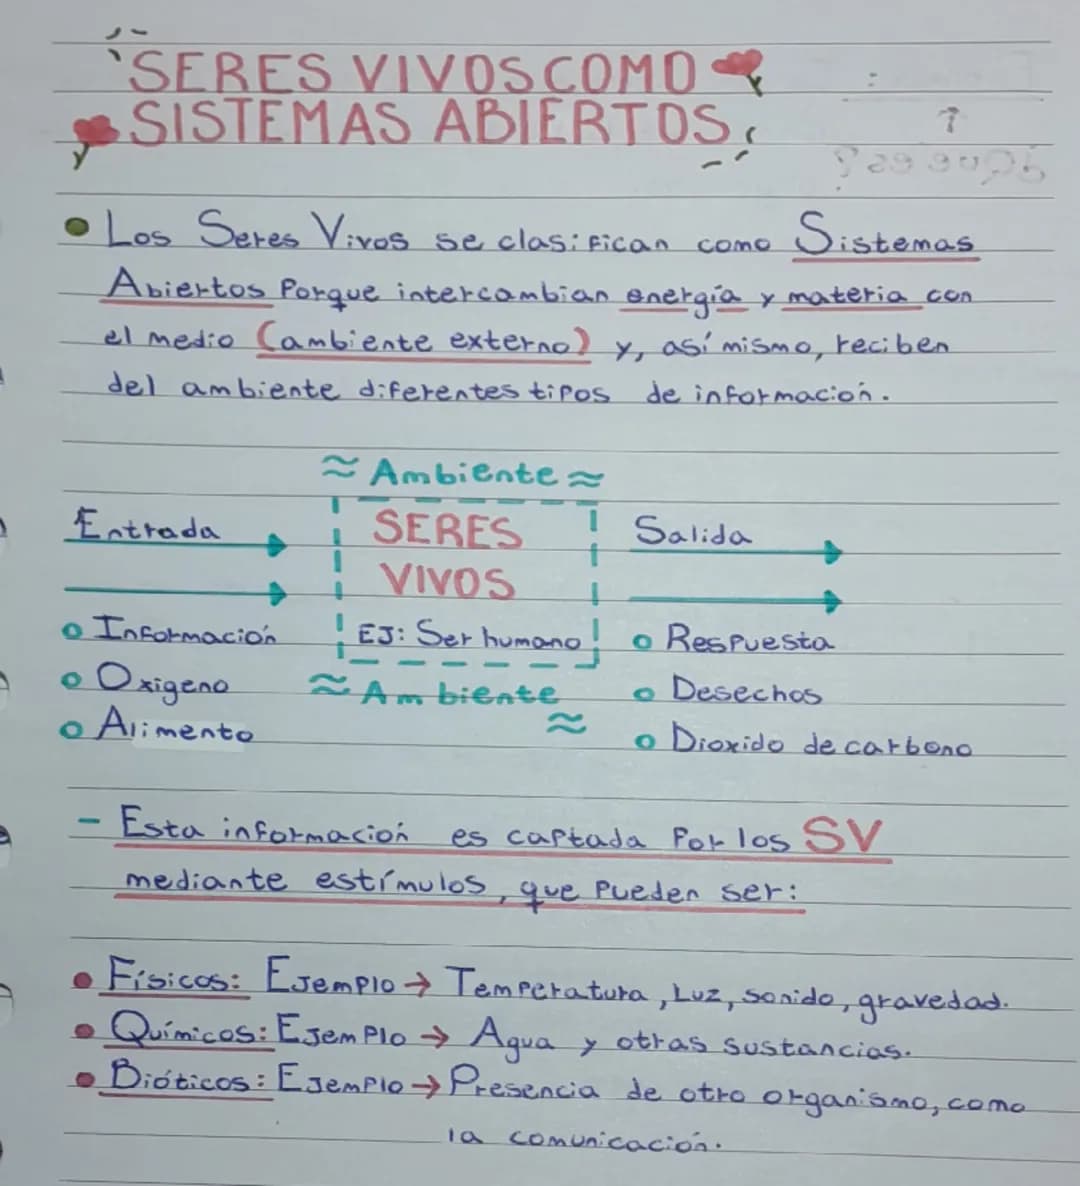 SERES VIVOS COMO
SISTEMAS ABIERTOS
• Los Seres Vivos se clasifican como Sistemas
Abiertos Porque intercambian energía y materia con
el medio (ambiente externo) y, así mismo, reciben
del ambiente diferentes tipos de información.
≈ Ambiente ≈
Entrada SERES Salida
VIVOS
o Información EJ: Ser humano o Respuesta
o Oxigeno ≈ Ambiente ≈ o Desechos
o Alimento o Dioxido de carbono
- Esta información es captada Por los SV
mediante estímulos, que Pueden ser:
• Físicos: Ejemplo → Temperatura, Luz, sonido, gravedad.
• Químicos: EJemPlo → Agua y otras sustancias.
• Bióticos: EJemplo → Presencia de otro organismo, como
la comunicación.